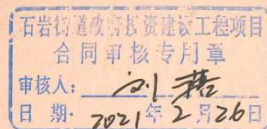 石岩街道政府投资建设工程项目
合同审核专用章
审核人：刘
日期：2021年2月26日